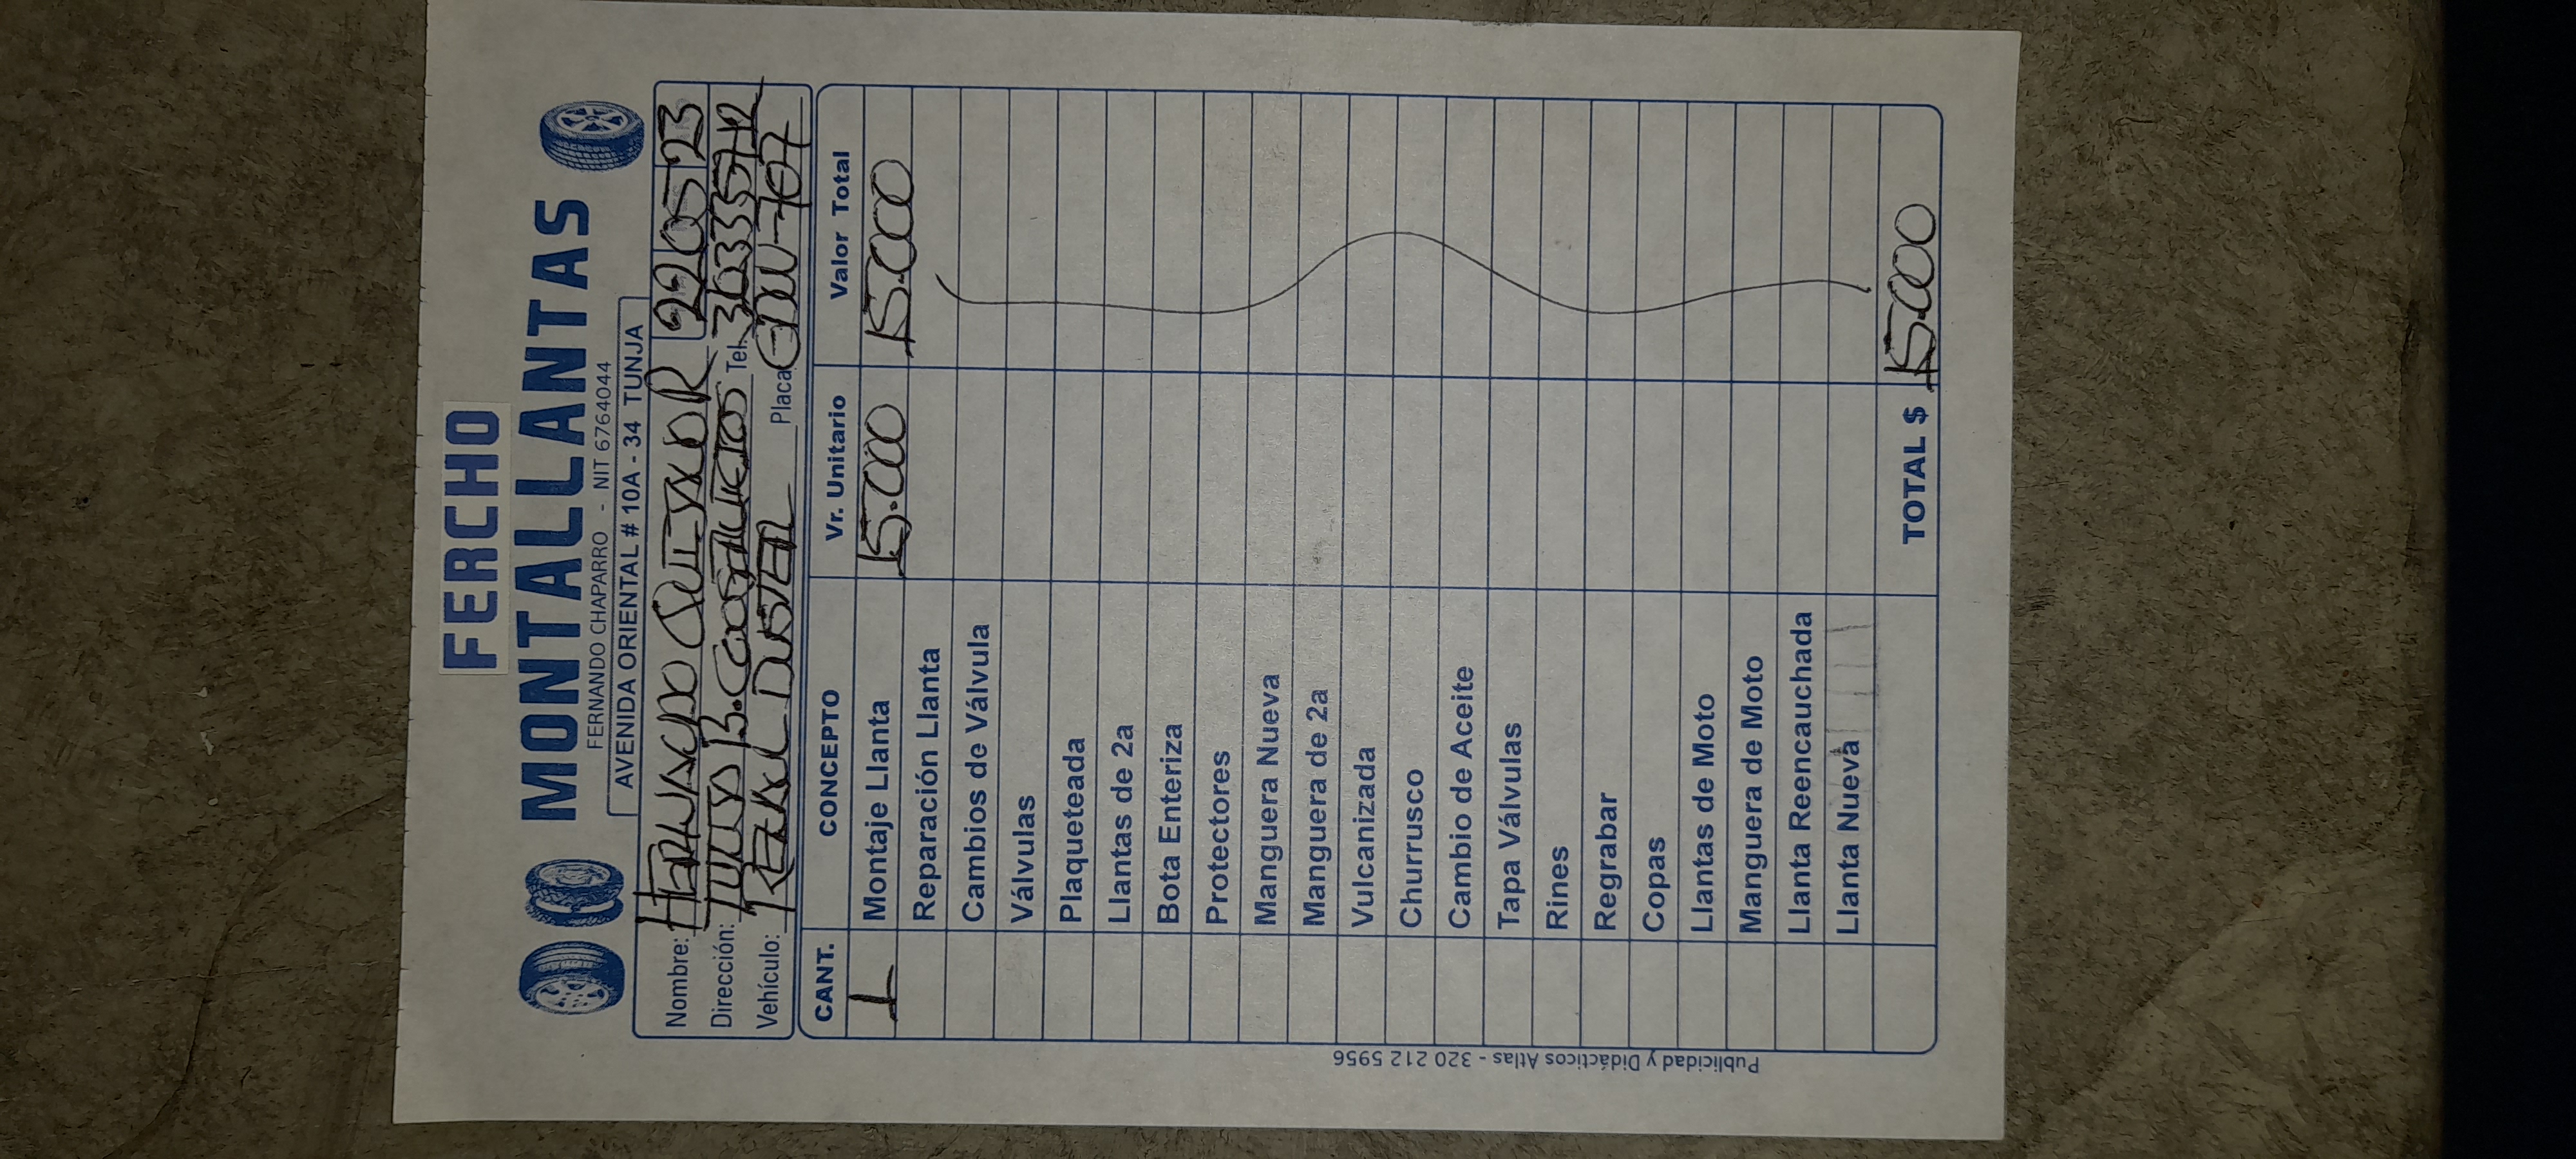 FERCHO
MONTALLANTAS
FERNANDO CHAPARRO - NIT 6764044
AVENIDA ORIENTAL # 10A - 34 TUNJA
Nombre: 22 05 23
Dirección: Tel.
Vehículo: Placa
CANT. CONCEPTO Vr. Unitario Valor Total
1 Montaje Llanta 15.000 15.000
Reparación Llanta
Cambios de Válvula
Válvulas
Plaqueteada
Llantas de 2a
Bota Enteriza
Protectores
Manguera Nueva
Manguera de 2a
Vulcanizada
Churrusco
Cambio de Aceite
Tapa Válvulas
Rines
Regrabar
Copas
Llantas de Moto
Manguera de Moto
Llanta Reencauchada
Llanta Nueva
TOTAL $ 15.000
Publicidad y Didácticos Atlas - 320 212 5956